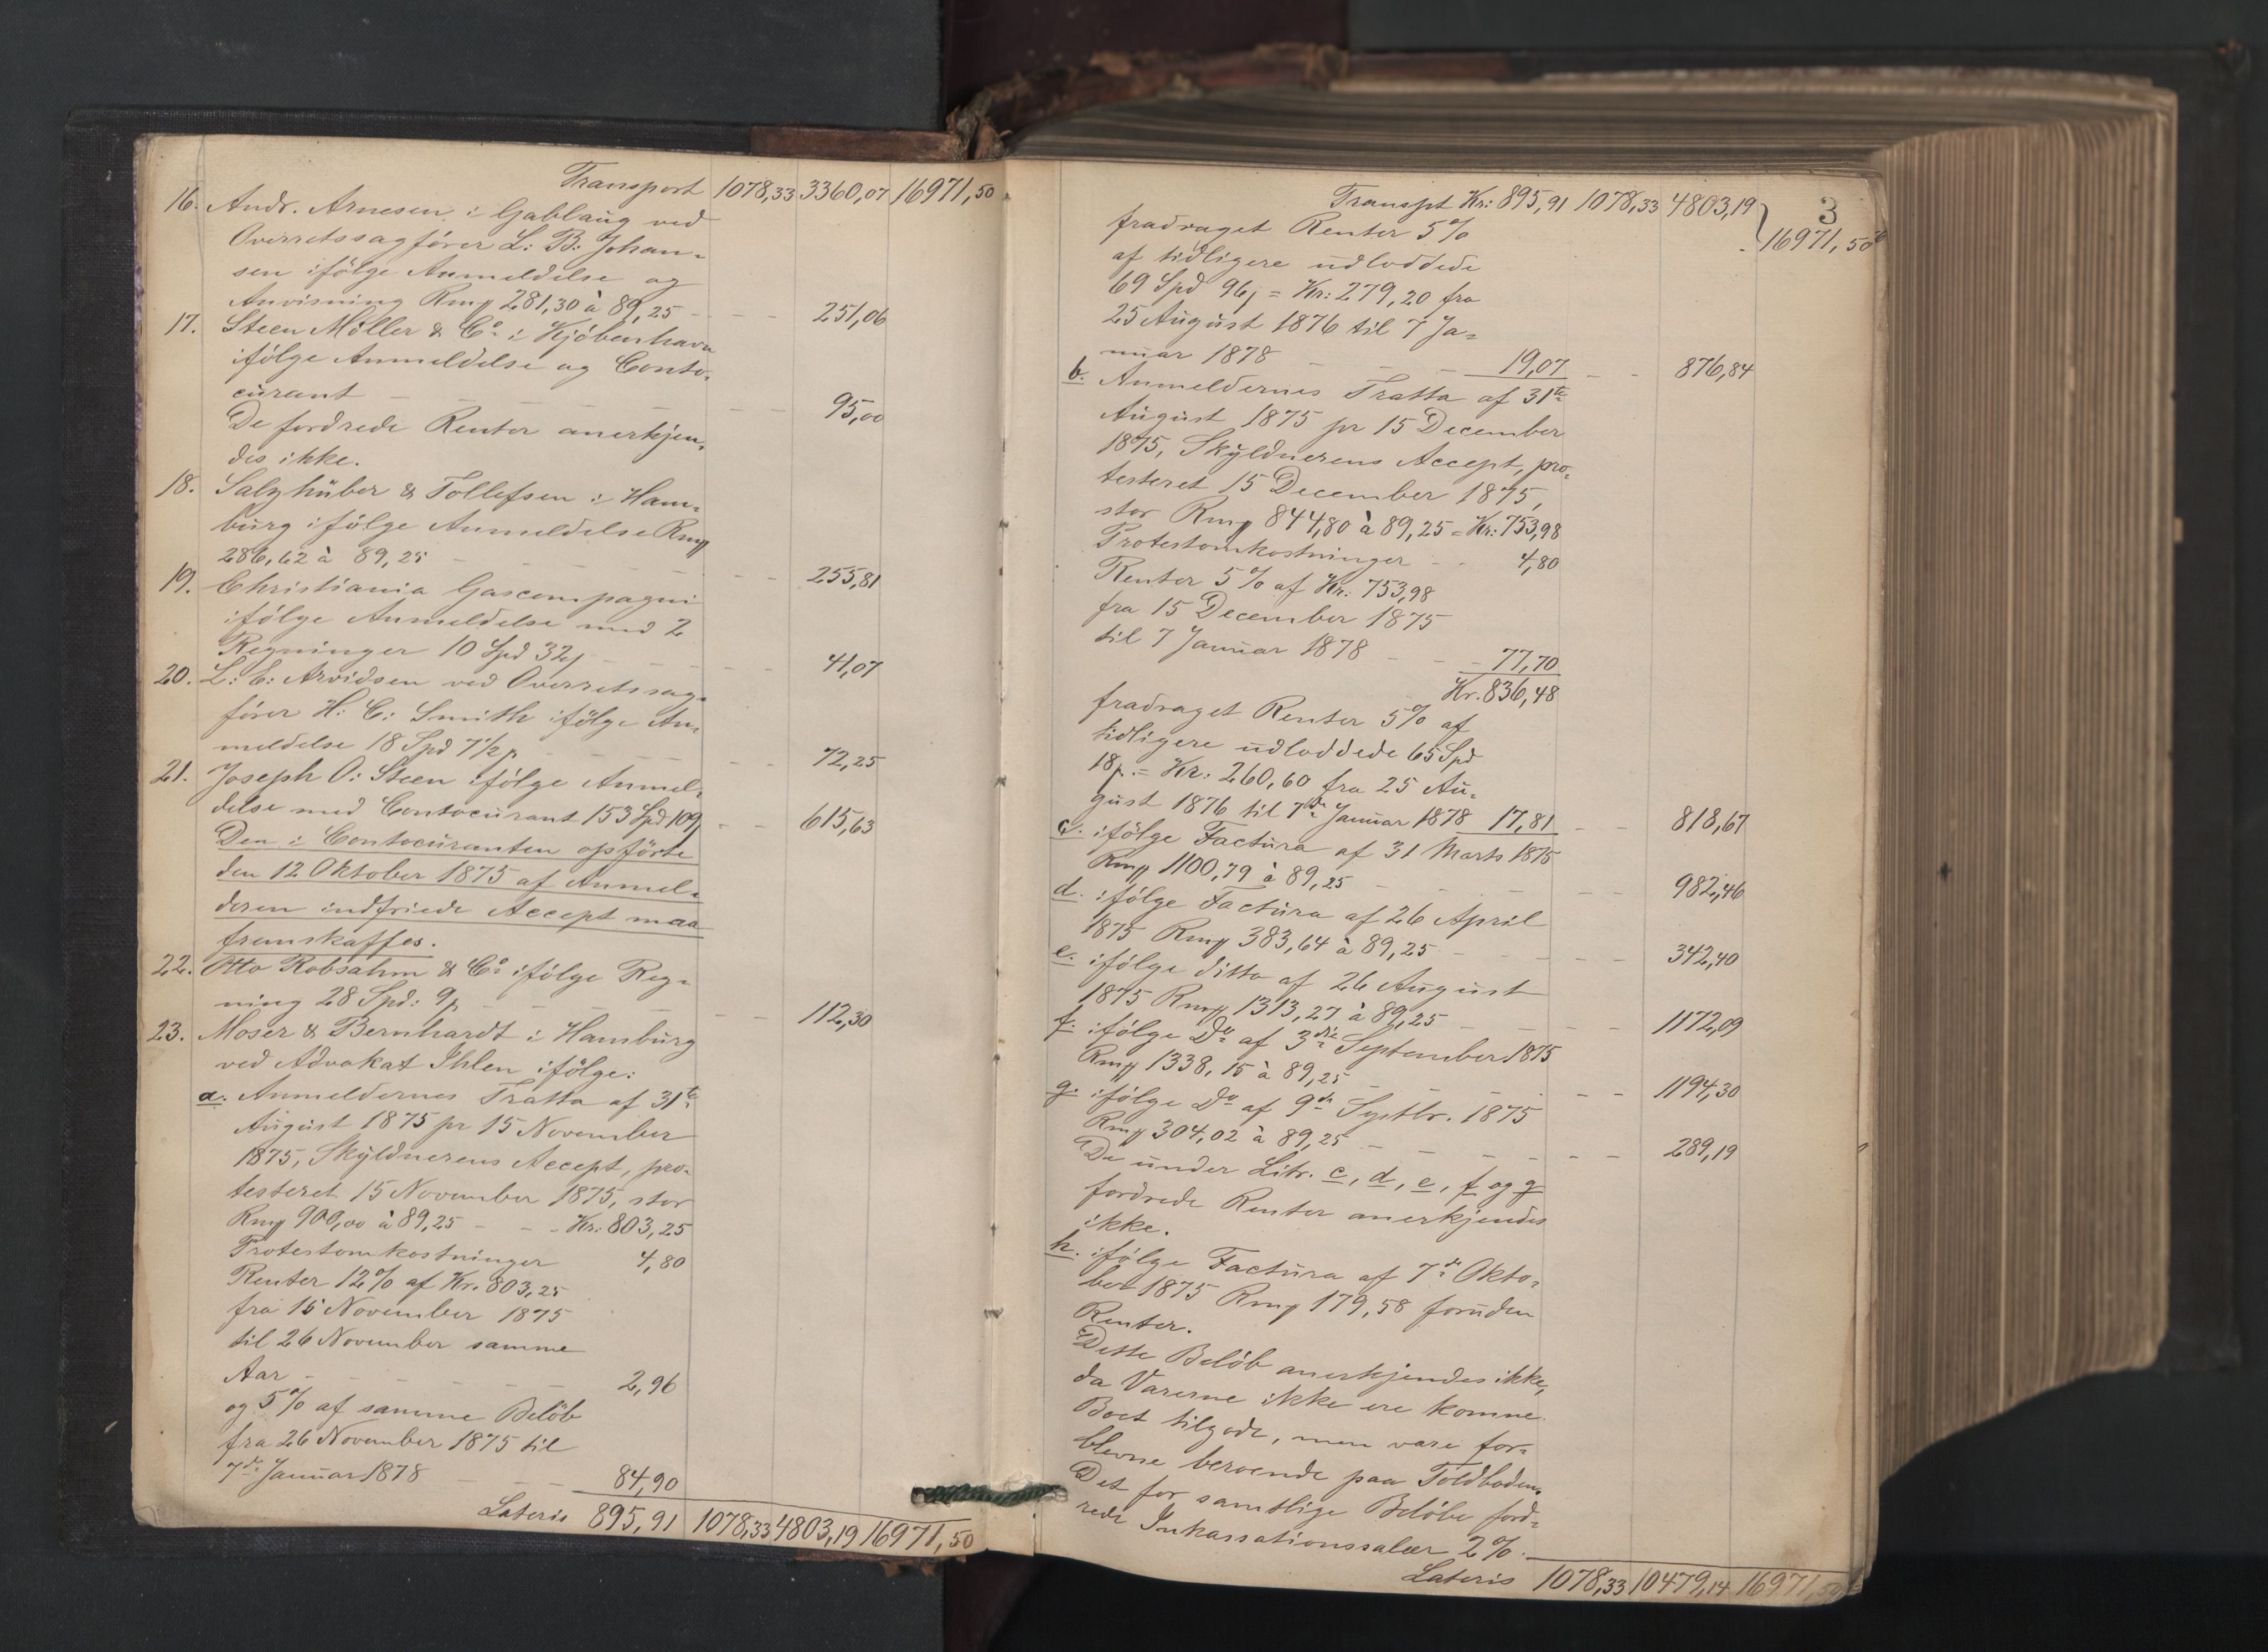 Transport 1078,33 3360,07 16971,50
16. Andr. Arnesen i Gablaug ved
Overretssagfører L: B: Johan-
sen ifølge Anmeldelse og
Anvisning Rmk 281,30 à 89,25 - - - 251,06
17. Steen Møller & Co i Kjøbenhavn
ifølge Anmeldelse og Conto-
curant - - - - - - 95,00
De fordrede Renter anerkjen-
des ikke.
18. Salzhuber & Tollefsen i Ham-
burg ifølge Anmeldelse Rmk
286,62 à 89,25 - - - - - 255,81
19. Christiania Gascompagni
ifølge Anmeldelse med 2
Regninger 10 Spd 32 - - - - - 41,07
20. L: C: Arvidsen ved Overretssag-
fører H: C: Smith ifølge An-
meldelse 18 Spd 7 1/2 p. - - - - 72,25
21. Joseph O: Steen ifølge Anmel-
delse med Contocurant 153 Spd 109 - - 615,63
Den i Contocuranten opførte
den 12 Oktober 1875 af Anmel-
deren indfriede Accept maa
fremskaffes.
22. Otto Robsahm & Co ifølge Reg-
ning 28 Spd: 9 p - - - - - 112,30
23. Moser & Bernhardt i Hamburg
ved Advokat Ihlen ifølge:
a. Anmeldernes Tratta af 31te
August 1875 pr 15 November
1875, Skyldnerens Accept, pro-
testeret 15 November 1875, stor
Rmk 900,00 à 89,25 - - - Kr: 803,25
Protestomkostninger 4,80
Renter 12% af Kr. 803,25
fra 15 November 1875
til 26 November samme
Aar - - - - - - 2,96
og 5% af samme Beløb
fra 26 November 1875 til
7de Januar 1878 - - - 84,90
Lateris 895,91 1078,33 4803,19 16971,50
3
Transpt Kr: 895,91 1078,33 4803,19 16971,50
fradraget Renter 5%
af tidligere udloddede
69 Spd 96 = Kr: 279,20 fra
25 August 1876 til 7 Ja-
nuar 1878 - - - 19,07 - - 876,84
b. Anmeldernes Tratta af 31te
August 1875 pr 15 December
1875, Skyldnerens Accept, pro-
testeret 15 December 1875,
stor Rmk 844,80 à 89,25 = Kr: 753,98
Protestomkostninger - - 4,80
Renter 5% af Kr: 753,98
fra 15 December 1875
til 7 Januar 1878 - - - 77,70
Kr. 836,48
fradraget Renter 5% af
tidligere udloddede 65 Spd
18 p. = Kr: 260,60 fra 25 Au-
gust 1876 til 7de Januar 1878 17,81 - - 818,67
c. ifølge Factura af 31 Marts 1875
Rmk 1100,79 à 89,25 - - - - - 982,46
d. ifølge Factura af 26 April
1875 Rmk 383,64 à 89,25 - - - - - 342,40
e. ifølge ditto af 26 August
1875 Rmk 1313,27 à 89,25 - - - - - 1172,09
f. ifølge Do af 3die September 1875
Rmk 1338,15 à 89,25 - - - - - 1194,30
g. ifølge Do af 9de Septbr. 1875
Rmk 304,02 à 89,25 - - - - - 289,19
De under Litr. c, d, e, f og g
fordrede Renter anerkjendes
ikke.
h. ifølge Factura af 7de Okto-
ber 1875 Rmk 179,58 foruden
Renter.
Dette Beløb anerkjendes ikke,
da Varerne ikke ere komne
Boet tilgode, men vare for-
blevne beroende paa Toldboden.
Det for samtlige Beløbe ford-
rede Inkassationssalær 2% -
Lateris 1078,33 10479,14 16971,50